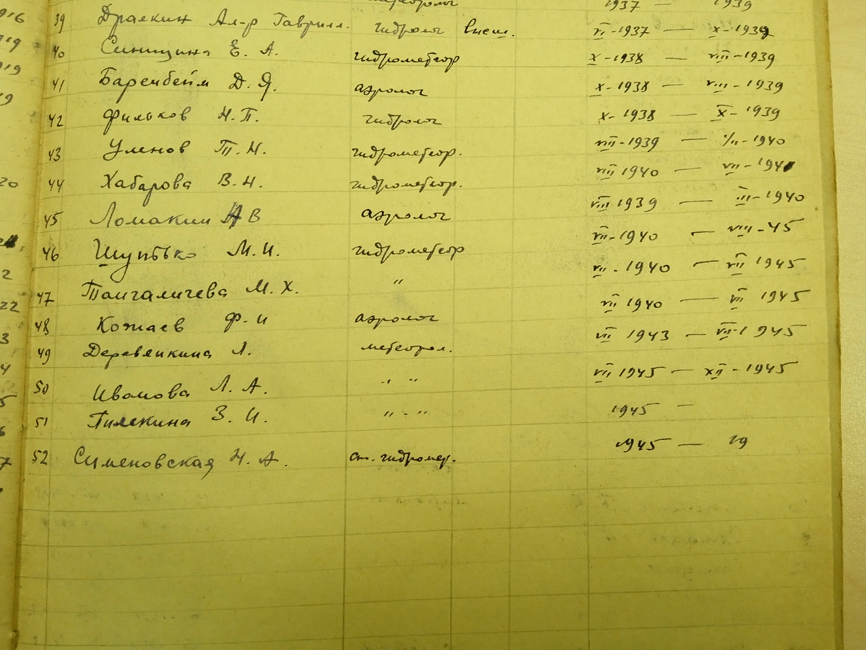 1937 — 1939
39 Ал-р Гаврил. гидролог внеш. VI-1937 — X-1939
40 Синицина Е. А. гидрометеор X-1938 — VIII-1939
41 Баренбейм Д. Я. аэролог X-1938 — VIII-1939
42 Фильков Н. П. гидролог X-1938 — X-1939
43 Уленов Т. Н. гидрометеор. VIII-1939 — 1940
44 Хабарова В. Н. гидрометеор. VIII 1940 — VII-1941
45 Ломакин А В аэролог VIII 1939 — III-1940
46 М. И. гидрометеор VII-1940 — VIII-45
47 М. Х. " VII-1940 — VII 1945
48 Кожаев Ф. И аэролог VII 1940 — VII 1945
49 Деревянкина Л. метеорол. VII 1943 — VII-1945
50 Иванова Л. А. " " VII 1945 — XII-1945
51 З. И. " - " 1945 —
52 Сименовская Н. А. ст. гидромет. 1945 — 19